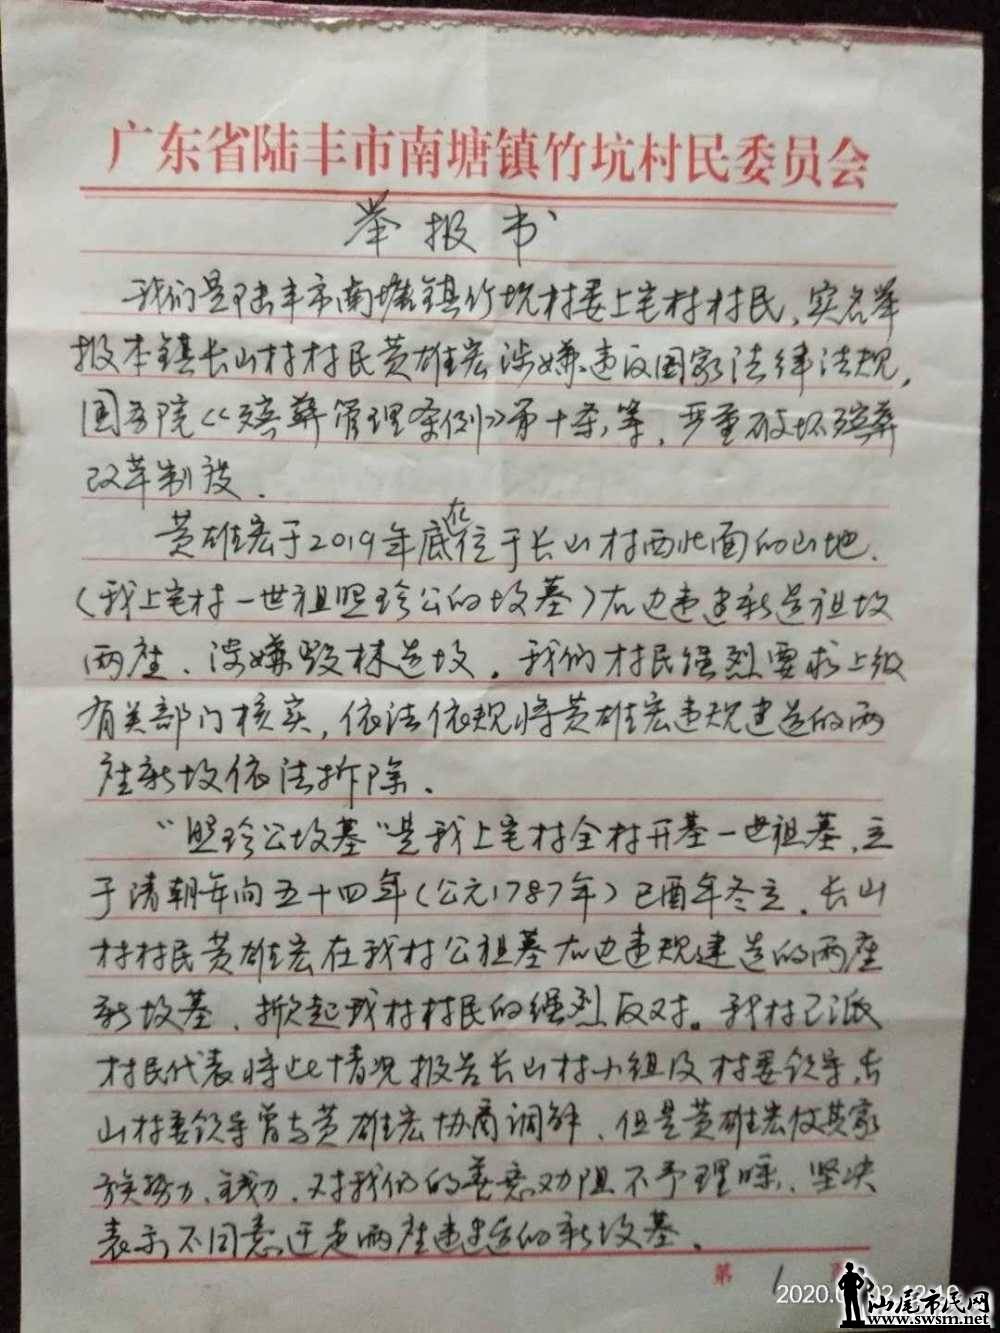 广东省陆丰市南塘镇竹坑村民委员会
举报书
我们是陆丰市南塘镇竹坑村委上宅村村民，实名举
报本镇长山村村民黄雄宏涉嫌违反国家法律法规，
国务院《殡葬管理条例》第十条，等，严重破坏殡葬
改革制度．
黄雄宏于2019年底在位于长山村西北面的山地．
（我上宅村一世祖照珍公的坟墓）右边违建新造祖坟
两座、涉嫌毁林造坟．我们村民强烈要求上级
有关部门核实，依法依规将黄雄宏违规建造的两
座新坟依法拆除．
“照珍公坟墓”是我上宅村全村开基一世祖墓，立
于清朝年间五十四年（公元1787年）己酉年冬立．长山
村村民黄雄宏在我村公祖墓右边违规建造的两座
新坟墓、掀起我村村民的强烈反对。我村已派
村民代表将此情况报告长山村小组及村委领导，长
山村委领导曾与黄雄宏协商调解、但是黄雄宏仗其家
族势力、钱力、对我们的善意劝阻不予理睬、坚决
表示不同意迁走两座违建造的新坟墓．
第 1
2020.
汕尾市民网
www.swsm.net